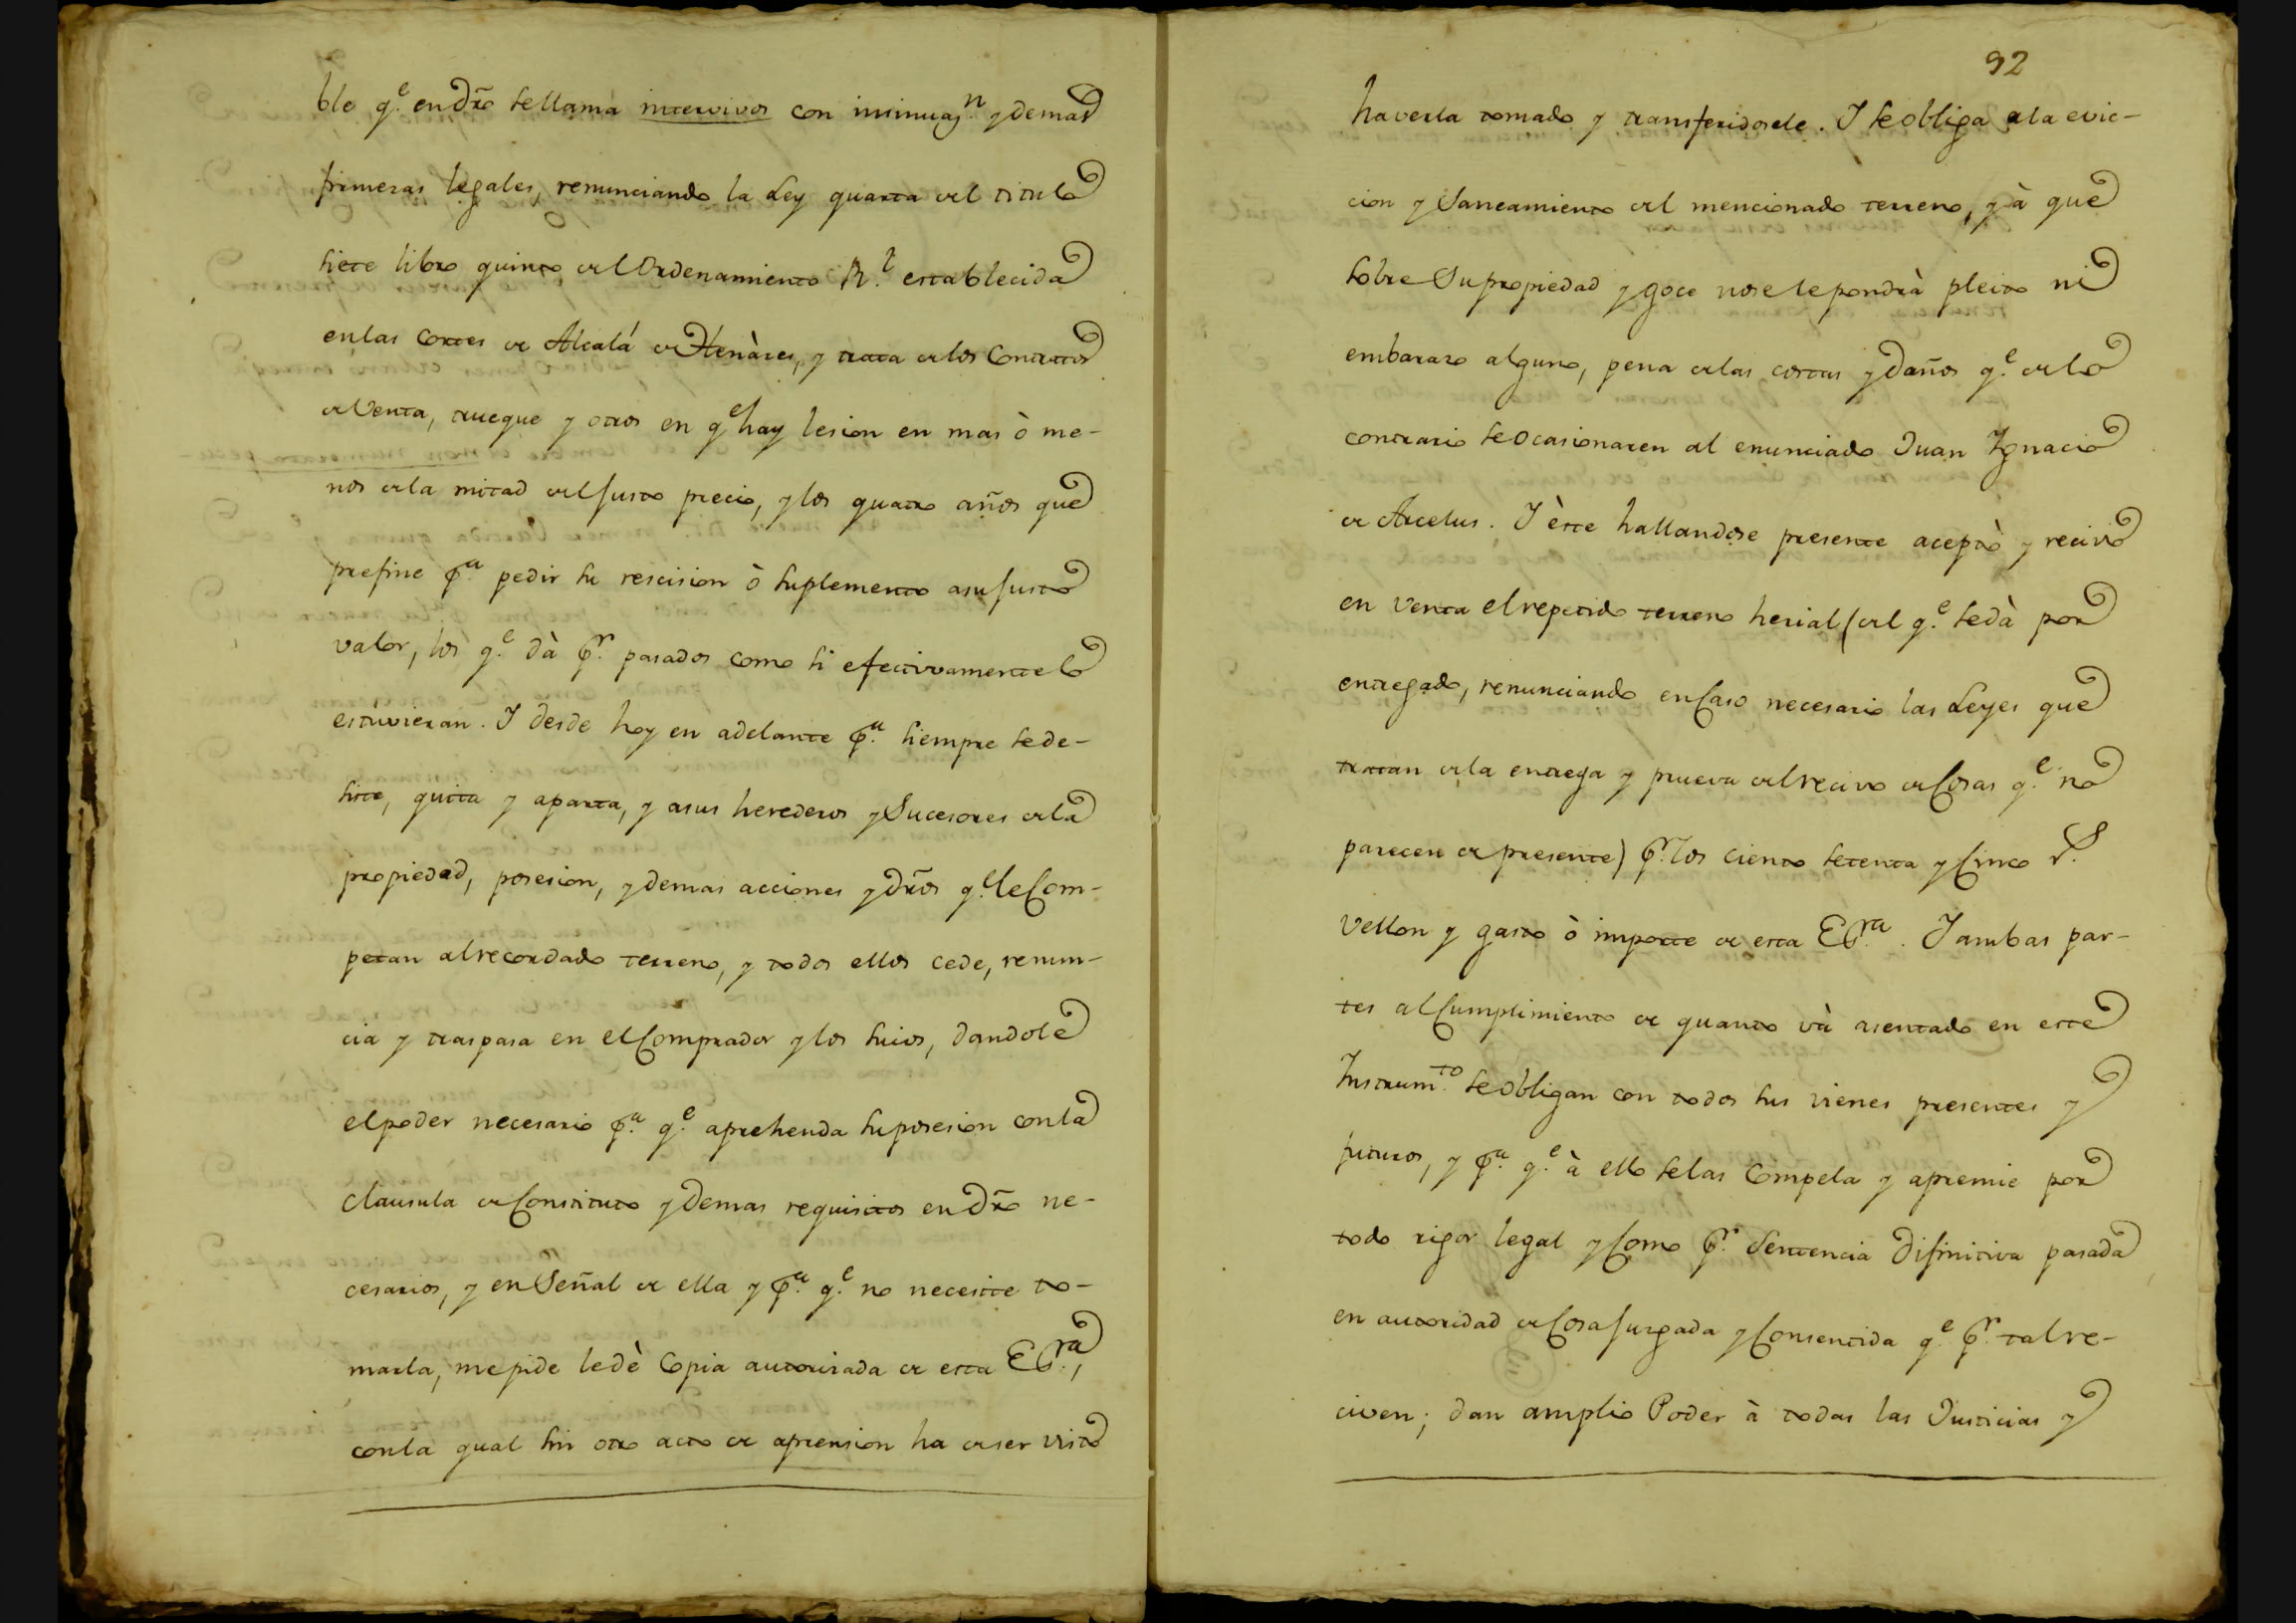 ble q.e en dr̃o se llama intervivos con insinuaz.n y demas
firmezas legales, renunciando la Ley quarta del titulo
siete libro quinto del Ordenamiento R.l establecida
en las Cortes de Alcalá de Henàres, y trata de los Contratos
de Venta, trueque y otros en q.e hay lesion en mas ò me-
nos de la mitad del justo precio, y los quatro años que
prefine p.a pedir su rescision ò suplemento a su justo
valor, los q.e dà p.r pasados como si efectivamente lo
estuvieran. I desde hoy en adelante p.a siempre se de-
siste, quita y aparta, y a sus herederos y Sucesores de la
propiedad, posesion, y demas acciones y dr̃os q.e le Com-
petan al recordado terreno, y todos ellos cede, renun-
cia y traspasa en el Comprador y los suios, dandole
el poder necesario p.a q.e aprehenda su posesion con la
clausula de Constituto y demas requisitos en dr̃o ne-
cesarios, y en Señal de ella y p.a q.e no necesite to-
marla, me pide le dè Copia autorizada de esta Esc.ra,
con la qual sin otro acto de aprension ha de ser visto
92
haverla tomado y transferidosele. I se obliga a la evic-
cion y Saneamiento del mencionado terreno, y à que
sobre Su propiedad y goce no se le pondrà pleito ni
embarazo alguno, pena de las costas y daños q.e de lo
contrario se ocasionaren al enunciado Juan Ignacio
de Arcelus. I èste hallandose presente aceptò y recivió
en Venta el repetido terreno herial (del q.e se dà por
entregado, renunciando en Caso necesario las Leyes que
tratan de la entrega y prueva del recivo de Cosas q.e no
parecen de presente) p.r los ciento setenta y Cinco r.s
Vellon y gasto ò importe de esta Esc.ra. I ambas par-
tes al Cumplimiento de quanto và asentado en este
Instrum.to se obligan con todos sus vienes presentes y
futuros, y p.a q.e à ello se las Compela y apremie por
todo rigor legal y Como p.r Sentencia difinitiva pasada
en autoridad de Cosa juzgada y Consentida q.e p.r tal re-
civen; dan amplio Poder à todas las Justicias y